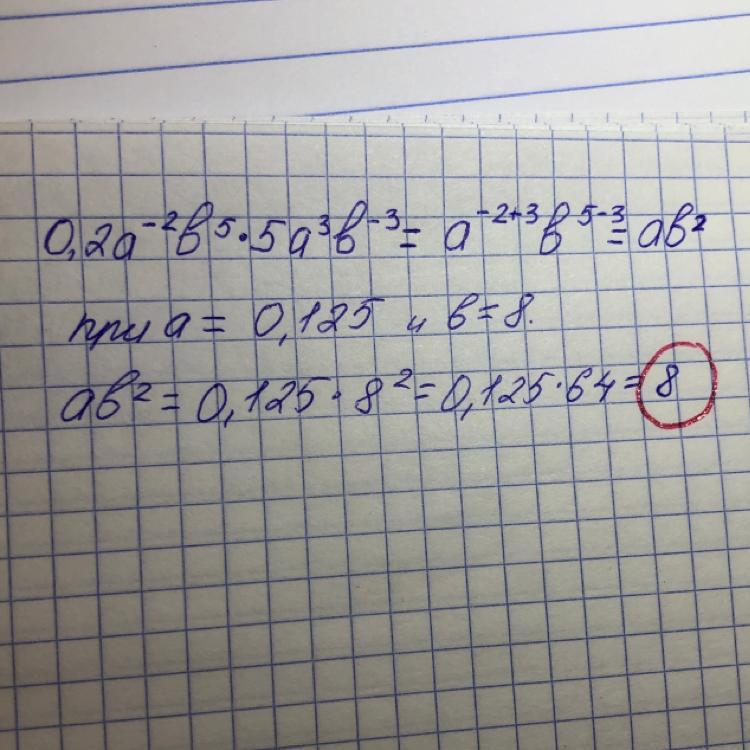 0,2a⁻²b⁵·5a³b⁻³ = a⁻²⁺³b⁵⁻³ = ab²
при a = 0,125 и b = 8.
ab² = 0,125·8² = 0,125·64 = 8